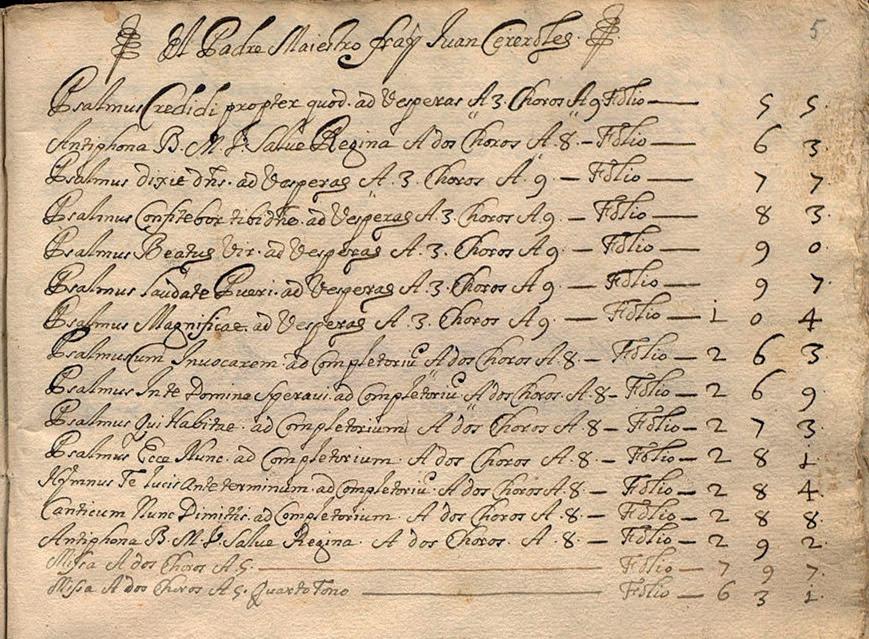 5
Al Padre Maiestro fray Juan Cererols
Psalmus Credidi propter quod. ad Vesperas A 3. Choros A 9 Folio — 5 5
Antiphona B. M. V. Salue Regina A dos Choros A. 8. — Folio — 6 3
Psalmus dixit dñs. ad Vesperas A. 3. Choros A. 9. — Folio — 7 7
Psalmus Confitebor tibi dñe. ad Vesperas A. 3. Choros A 9. — Folio — 8 3
Psalmus Beatus Vir. ad Vesperas A. 3. Choros A 9. — Folio — 9 0
Psalmus Laudate Pueri. ad Vesperas A. 3. Choros A 9. — Folio — 9 7
Psalmus Magnificat. ad Vesperas A. 3. Choros A 9. — Folio — 1 0 4
Psalmus Cum Inuocarem. ad Completoriu A dos Choros A. 8 — Folio — 2 6 3
Psalmus In te Domine Speraui. ad Completoriu. A dos Choros A. 8 — Folio — 2 6 9
Psalmus Qui Habitat. ad Completorium A dos Choros A. 8 — Folio — 2 7 3
Psalmus Ecce Nunc. ad Completorium. A dos Choros A. 8 — Folio — 2 8 1
Hymnus Te lucis ante terminum. ad Completoriu. A dos Choros A. 8. — Folio — 2 8 4
Canticum Nunc Dimittis. ad Completorium. A dos Choros A. 8. — Folio — 2 8 8
Antiphona B. M. V. Salue Regina. A dos Choros. A. 8. — Folio — 2 9 2
Missa A dos Choros A 5. — Folio — 7 9 7
Missa A dos Choros A 5. Quarto Tono — Folio — 6 3 1